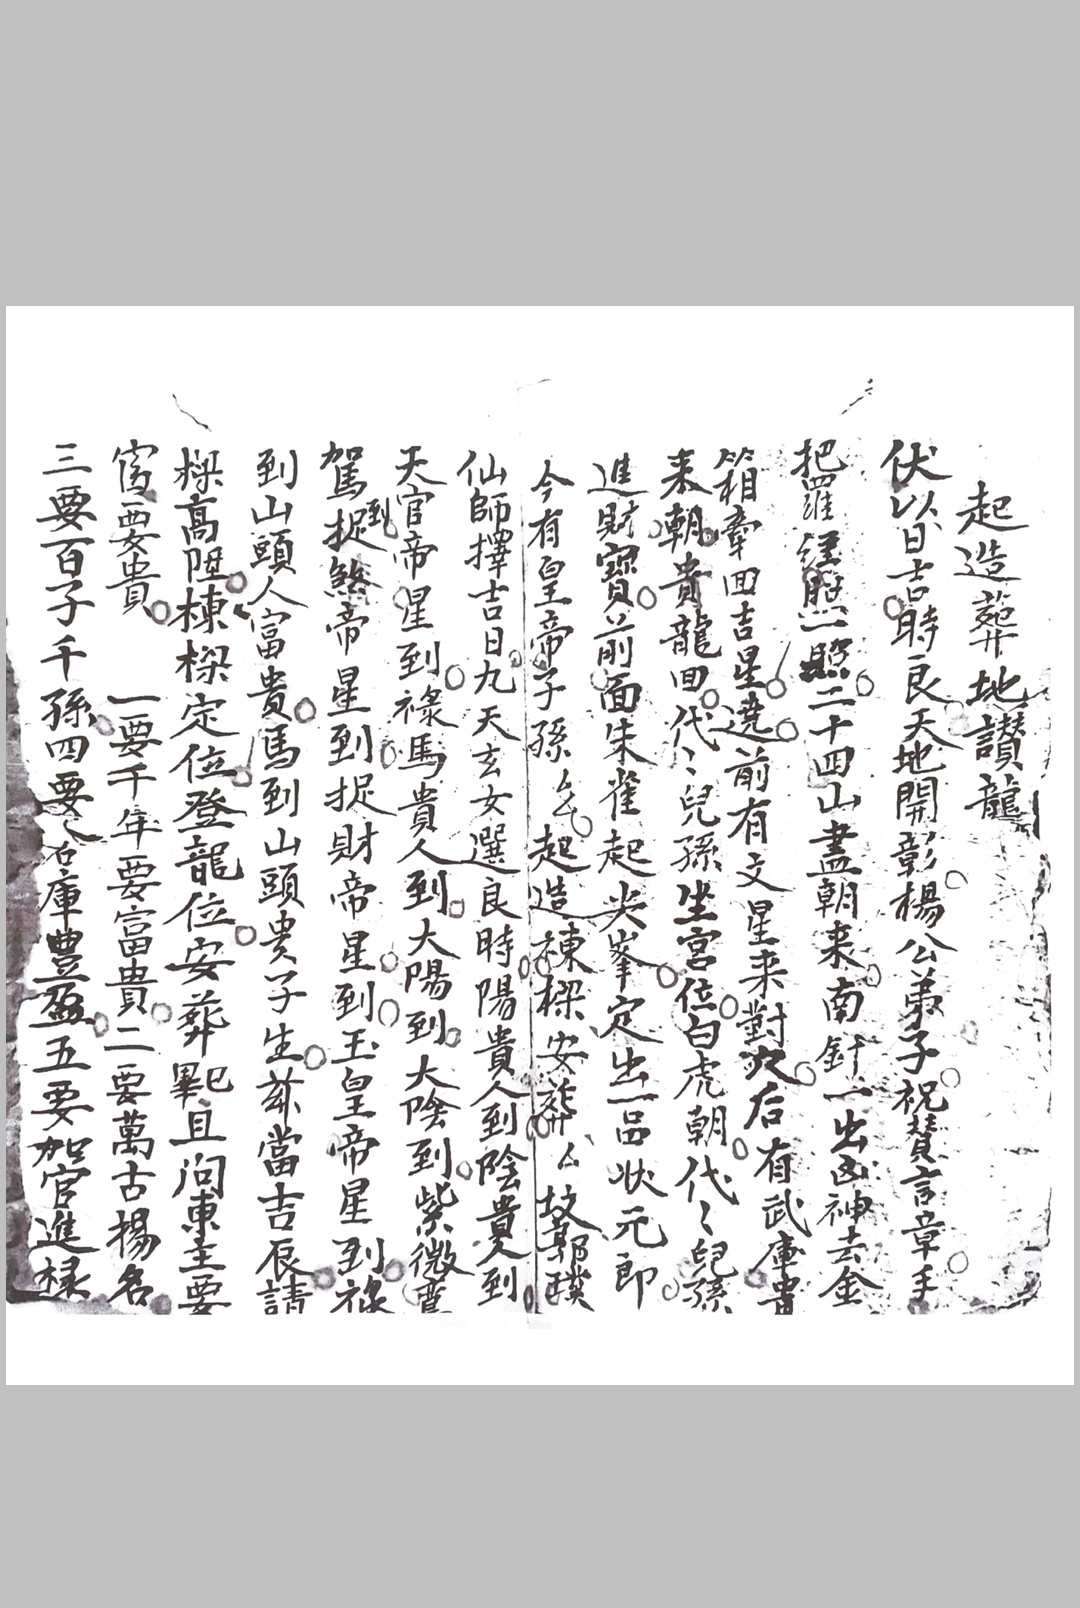 起造葬地讃龍
伏以日吉時良天地開彰楊公弟子祝賛言章手
把羅經照一照二十四山盡朝来南針一出凶神去金
箱章回吉星遶前有文星来對穴后有武庫貴
来朝貴龍回代〻兒孫坐宮位白虎朝代〻兒孫
進財寳前面朱雀起尖峯定出一品状元郎
今有皇帝子孫厶乞起造棟樑安葬厶坟郭璞
仙師擇吉日九天玄女選良時陽貴人到陰貴人到
天官帝星到祿馬貴人到大陽到大陰到紫微鸾
駕到捉煞帝星到捉財帝星到玉皇帝星到祿
到山頭人富貴馬到山頭貴子生茲當吉辰請
樑高陞棟樑定位登龍位安葬畢已且问東主要
富要貴 一要千年要富貴二要萬古揚名
三要百子千孫四要倉庫豊盈五要加官進禄